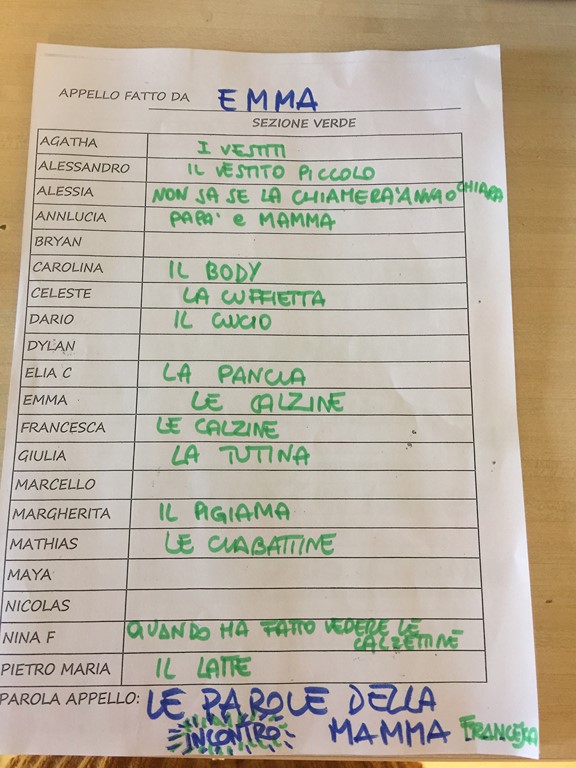 APPELLO FATTO DA EMMA
SEZIONE VERDE
AGATHA I VESTITI
ALESSANDRO IL VESTITO PICCOLO
ALESSIA NON SA SE LA CHIAMERA' ANNA O CHIARA
ANNLUCIA PAPA' e MAMMA
BRYAN
CAROLINA IL BODY
CELESTE LA CUFFIETTA
DARIO IL CIUCIO
DYLAN
ELIA C LA PANCIA
EMMA LE CALZINE
FRANCESCA LE CALZINE
GIULIA LA TUTINA
MARCELLO
MARGHERITA IL PIGIAMA
MATHIAS LE CIABATTINE
MAYA
NICOLAS
NINA F QUANDO HA FATTO VEDERE LE CALZETTINE
PIETRO MARIA IL LATTE
PAROLA APPELLO: LE PAROLE DELLA
INCONTRO MAMMA FRANCESKA